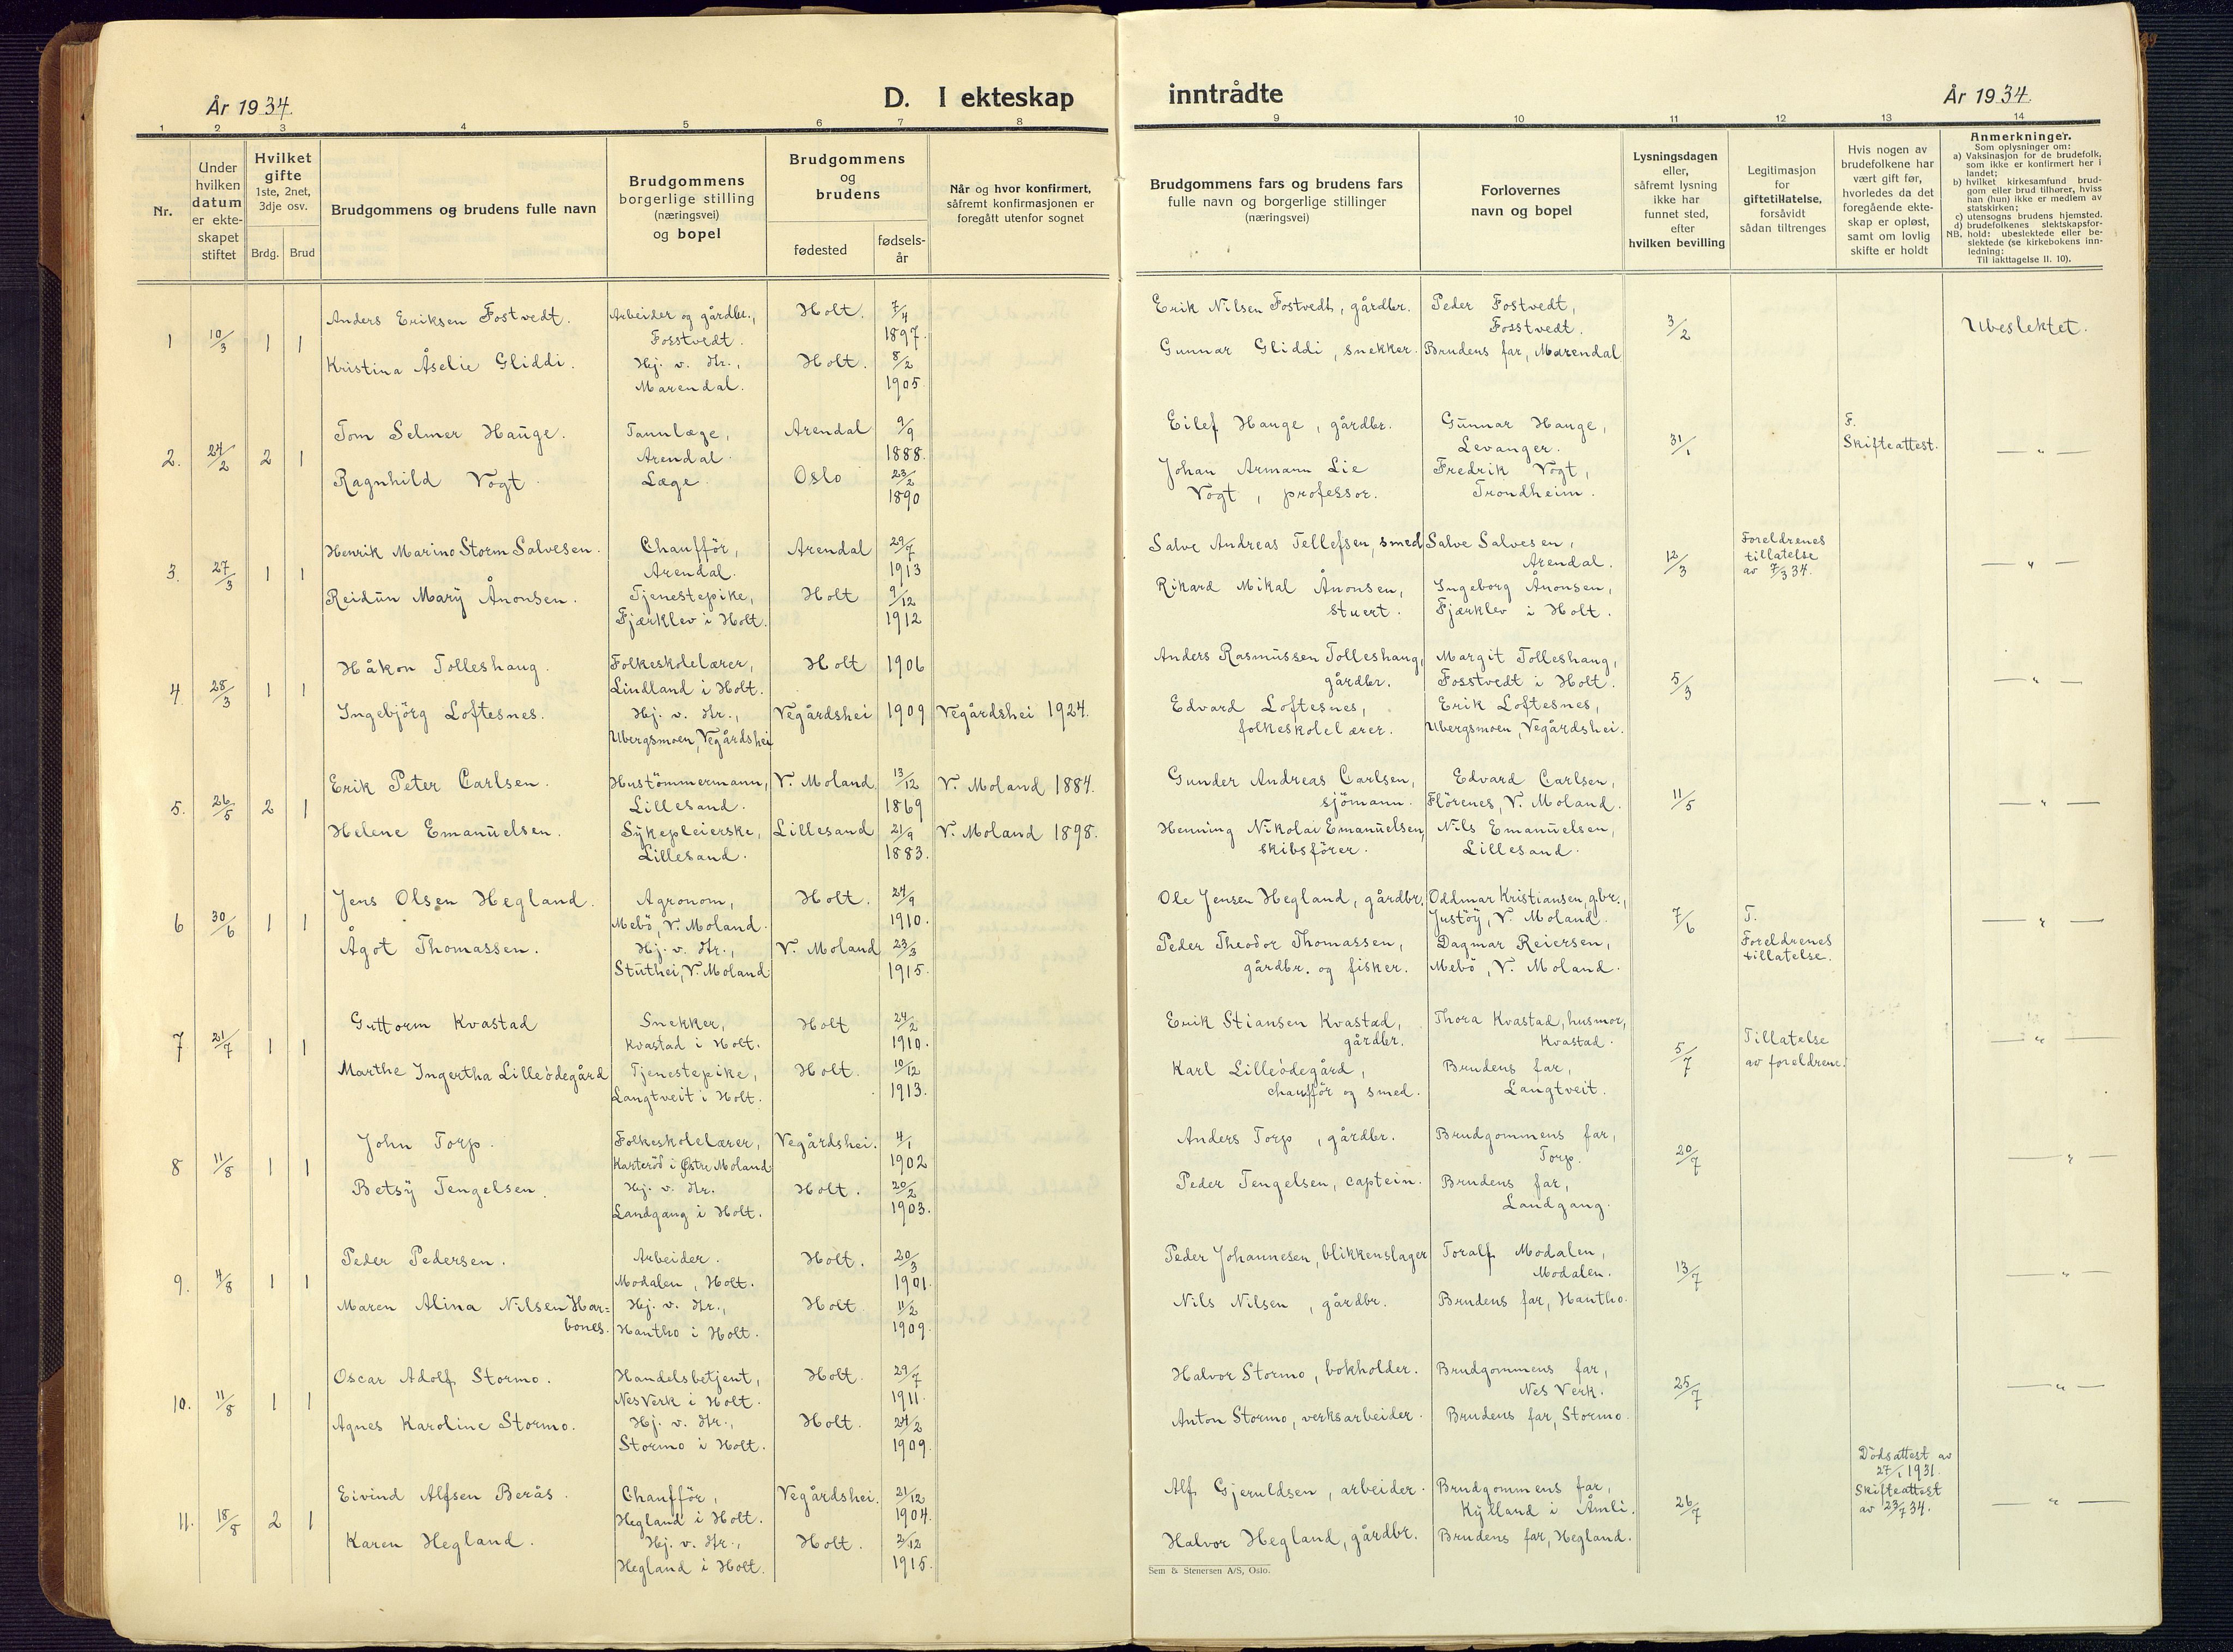 År 1934.
D. I ekteskap
inntrådte
År 1934.
1 2 3 4 5 6 7 8 9 10 11 12 13 14
Nr.
Under hvilken datum er ekte-skapet stiftet
Hvilket gifte
1ste, 2net, 3dje osv.
Brdg. Brud
Brudgommens og brudens fulle navn
Brudgommens borgerlige stilling (næringsvei) og bopel
Brudgommens og brudens
fødested
fødsels-år
Når og hvor konfirmert, såfremt konfirmasjonen er foregått utenfor sognet
Brudgommens fars og brudens fars fulle navn og borgerlige stillinger (næringsvei)
Forlovernes navn og bopel
Lysningsdagen eller, såfremt lysning ikke har funnet sted, efter hvilken bevilling
Legitimasjon for giftetillatelse, forsåvidt sådan tiltrenges
Hvis nogen av brudefolkene har vært gift før, hvorledes da det foregående ekte-skap er opløst, samt om lovlig skifte er holdt
Anmerkninger.
Som oplysninger om:
a) Vaksinasjon for de brudefolk, som ikke er konfirmert her i landet;
b) hvilket kirkesamfund brud-gom eller brud tilhører, hviss han (hun) ikke er medlem av statskirken;
c) utensogns brudens hjemsted.
d) brudefolkenes slektskapsfor-hold: ubeslektede eller be-slektede (se kirkebokens inn-ledning:
NB.
Til iakttagelse II. 10).
1 10/3 1 1
Anders Eriksen Fostvedt. Arbeider og gårdbr., Fosstvedt. Holt. 7/4 1897.
Kristina Åselie Gliddi. Hj. v. Hr., Marendal. Holt. 8/2 1905
Erik Nilsen Fostvedt, gårdbr. Peder Fostvedt, Fosstvedt. 3/2 Ubeslektet.
Gunnar Gliddi, snekker. Brudens far, Marendal
2. 24/2 2 1
Tom Selmer Hauge. Tannlæge, Arendal. Arendal 9/9 1888.
Ragnhild Vogt. Læge. Oslo 23/2 1890
Eilef Hauge, gårdbr. Gunnar Hauge, Levanger. 31/1 F. Skifteattest. — " —
Johan Armann Lie Vogt, professor. Fredrik Vogt, Trondheim.
3. 27/3 1 1
Henrik Marino Storm Salvesen. Chaufför, Arendal. Arendal 29/7 1913
Reidun Mary Ånonsen. Tjenestepike, Fjærklev i Holt. Holt 9/12 1912
Salve Andreas Tellefsen, smed Salve Salvesen, Arendal. 12/3 Foreldrenes tillatelse av 7/3 34. — " —
Rikard Mikal Ånonsen, stuert. Ingeborg Ånonsen, Fjærklev i Holt.
4 28/3 1 1
Håkon Tolleshaug. Folkeskolelærer, Lindland i Holt. Holt 1906
Ingebjörg Loftesnes. Hj. v. Hr., Ubergsmoen, Vegårdshei Vegårdshei 1909 Vegårdshei 1924.
Anders Rasmussen Tolleshaug, gårdbr. Margit Tolleshaug, Fosstvedt i Holt. 5/3 — " —
Edvard Loftesnes, folkeskolelærer. Erik Loftesnes, Ubergsmoen, Vegårdshei.
5. 26/5 2 1
Erik Peter Carlsen. Hustömmermann, Lillesand. V. Moland 13/12 1869 V. Moland 1884.
Helene Emanuelsen. Sykepleierske, Lillesand. Lillesand 21/9 1883. V. Moland 1898.
Gunder Andreas Carlsen, sjömann. Edvard Carlsen, Flörenes, V. Moland. 11/5 — " —
Henning Nikolai Emanuelsen, skibsförer. Nils Emanuelsen, Lillesand.
6 30/6 1 1
Jens Olsen Hegland. Agronom, Mebö, V. Moland. Holt. 24/9 1910.
Ågot Thomassen. Hj. v. Hr., Stuthei, V. Moland V. Moland 23/3 1915.
Ole Jensen Hegland, gårdbr. Oddmar Kristiansen, gbr., Justöy, V. Moland. 7/6 T. Foreldrenes tillatelse. — " —
Peder Theodor Thomassen, gårdbr. og fisker. Dagmar Reiersen, Mebö, V. Moland.
7 21/7 1 1
Guttorm Kvastad Snekker, Kvastad i Holt. Holt 24/2 1910.
Marthe Ingertha Lilleödegård Tjenestepike, Langtveit i Holt. Holt. 10/12 1913.
Erik Stiansen Kvastad, gårdbr. Thora Kvastad, husmor, Kvastad. 5/7 Tillatelse av foreldrene. — " —
Karl Lilleödegård, chaufför og smed. Brudens far, Langtveit.
8 11/8 1 1
John Torp. Folkeskolelærer, Karteröd i Østre Moland Vegårdshei. 4/1 1902
Betsy Tengelsen. Hj. v. Hr. Landgang i Holt. Holt. 20/2 1903.
Anders Torp, gårdbr. Brudgommens far, Torp. 20/7 — " —
Peder Tengelsen, captein. Brudens far, Landgang.
9. 4/8 1 1
Peder Pedersen. Arbeider. Modalen, Holt. Holt. 20/3 1901.
Maren Alina Nilsen Har=bones. Hj. v. Hr., Hantho i Holt. Holt 11/2 1909.
Peder Johannesen, blikkenslager Toralf Modalen, Modalen. 13/7 — " —
Nils Nilsen, gårdbr. Brudens far, Hantho.
10. 11/8 1 1
Oscar Adolf Stormo. Handelsbetjent, Nes Verk i Holt. Holt. 29/7 1911.
Agnes Karoline Stormo. Hj. v. Hr., Stormo i Holt. Holt. 24/2 1909.
Halvor Stormo, bokholder. Brudgommens far, Nes Verk. 25/7 — " —
Anton Stormo, verksarbeider. Brudens far, Stormo.
11. 18/8 2 1
Eivind Alfsen Berås. Chaufför, Hegland i Holt. Vegårdshei. 21/12 1904.
Karen Hegland. Hj. v. Hr., Hegland i Holt. Holt. 3/12 1915.
Alf Gjeruldsen, arbeider. Brudgommens far, Kylland i Åmli. 26/7 Dödsattest av 27/1 1931. Skifteattest av 23/7 34. — " —
Halvor Hegland, gårdbr. Brudens far, Hegland.
Sem & Stenersen A/S, Oslo.